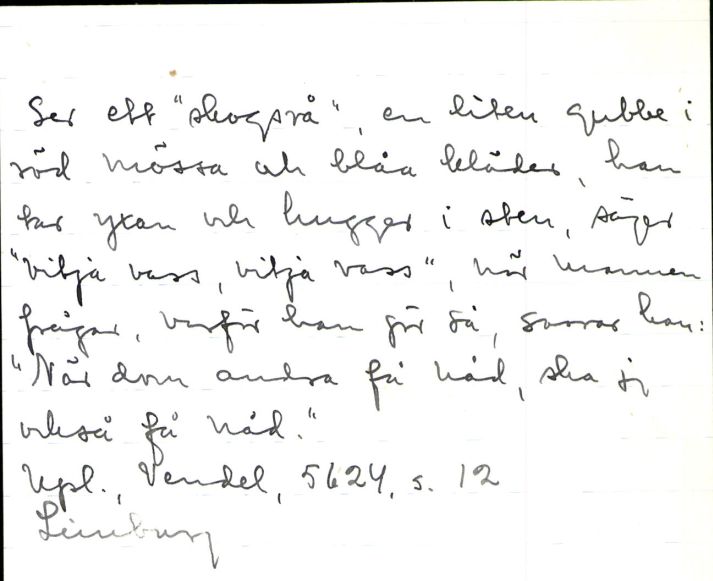 Ser ett "skogsrå", en liten gubbe i
röd mössa och blåa kläder, han
tar yxan och hugger i sten, säger
"vitjå vass, vitjå vass", när mannen
frågar, varför han gör så, svarar han:
"När dom andra få nåd, ska jag
också få nåd."
Upl., Vendel, 5624, s. 12
Limburg